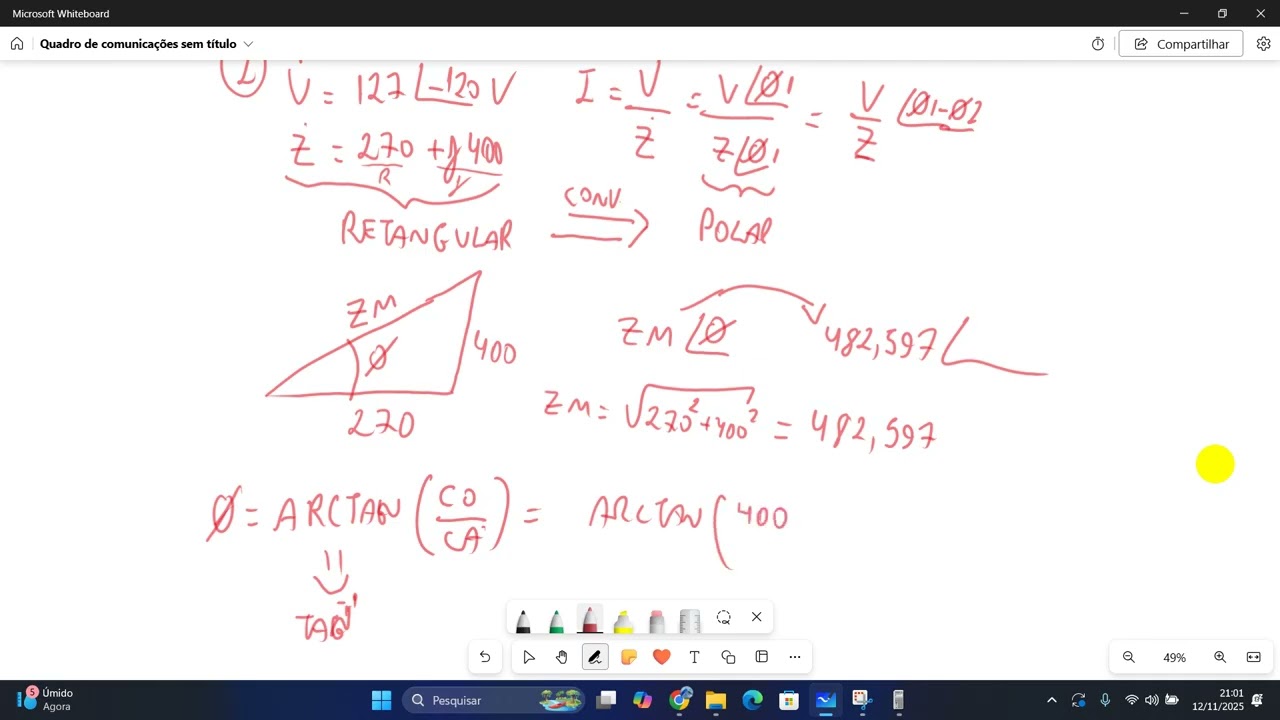 Microsoft Whiteboard
Quadro de comunicações sem título
Compartilhar
V̇ = 127 ∠-120 V
I = V/Ż = V∠Ø1/Z∠Ø1 = V/Z ∠Ø1-Ø2
Ż = 270 + j400
R
RETANGULAR
CONV
POLAR
ZM
Ø
400
270
ZM ∠Ø
482,597 ∠
ZM = √270² + 400² = 482,597
Ø = ARCTAN (CO/CA) = ARCTAN (400
TAG⁻¹
49%
5
Úmido
Agora
Pesquisar
21:01
12/11/2025